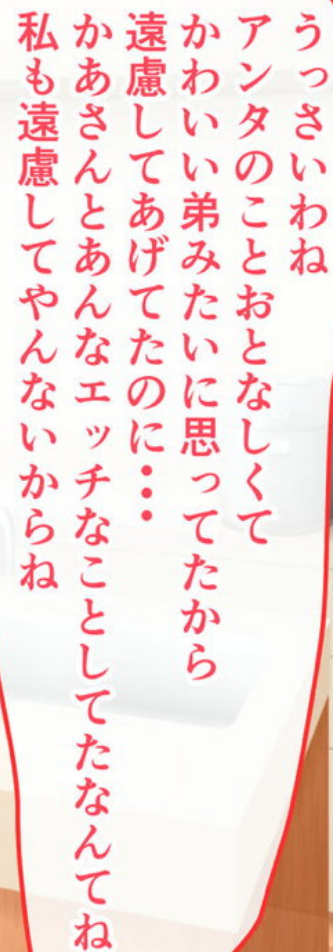 うっさいわね
アンタのことおとなしくて
かわいい弟みたいに思ってたから
遠慮してあげてたのに・・・
かあさんとあんなエッチなことしてたなんてね
私も遠慮してやんないからね